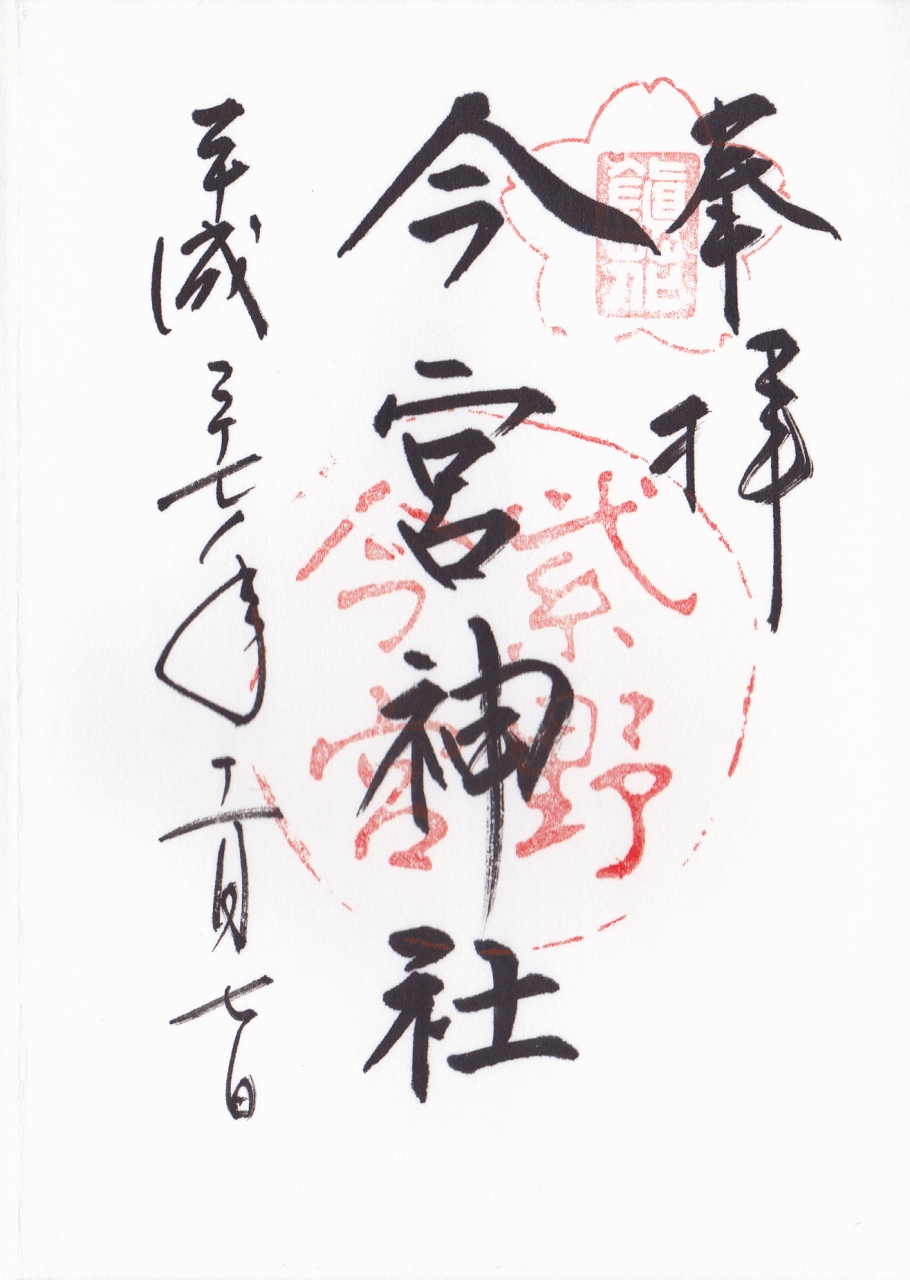 奉拝
今宮神社
平成二十七年十一月七日
紫野
今宮